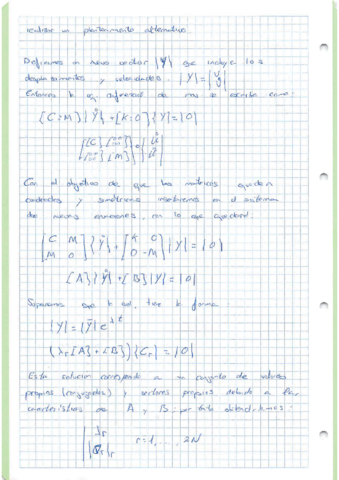 realizar un planteamiento alternativo
Definimos un nuevo vector |Y| que incluye los
desplazamientos y velocidades. |Y| =
Entonces la ec, diferencial de mov se escribe como:
[C:M]|Ẏ| + [K:0]{Y} = |0|
Con el objetivo de que las matrices queden
cuadradas y simétricas el sistema
de nuevas ecuaciones, en lo que quedará:
[C M
M 0]{Ẏ} + [K 0
0 -M]|Y| = |0|
[A]{Ẏ} + [B]|Y| = |0|
Suponemos que la sol, tiene la forma:
|Y| = |Ȳ| e^{λt}
(λr[A] + [B]){Cr} = |0|
Esta solución corresponde a un conjunto de valores
propios (conjugados) y vectores propios debido a las
características de A y B: por tanto obtendríamos:
r = 1, ..., 2N